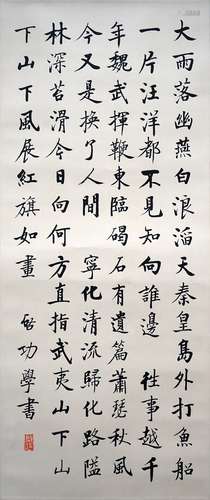 大雨落幽燕白浪滔天秦皇島外打魚船
一片汪洋都不見知向誰邊 往事越千
年魏武揮鞭東臨碣石有遺篇蕭瑟秋風
今又是換了人間 寧化清流歸化路隘
林深苔滑今日向何方直指武夷山下山
下山下風展紅旗如畫 启功學書